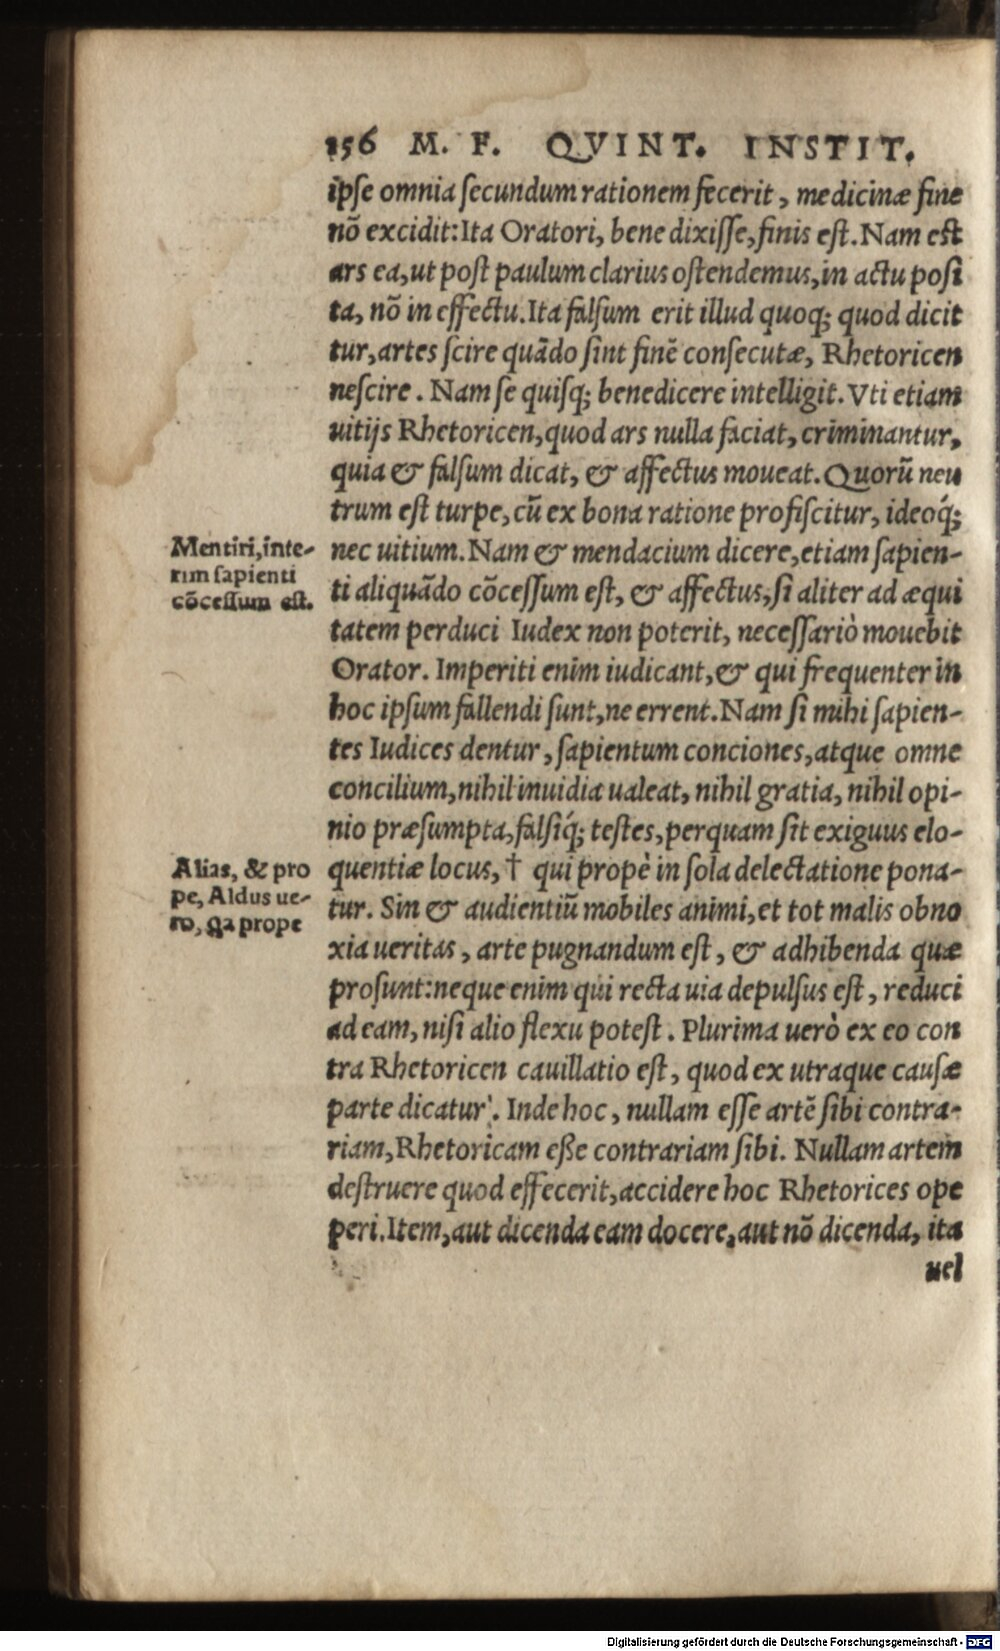 156 M. F. QVINT. INSTIT.
ipſe omnia ſecundum rationem fecerit, medicinæ fine
nõ excidit: Ita Oratori, bene dixiſſe, finis eſt. Nam eſt
ars ea, ut poſt paulum clarius oſtendemus, in actu poſi
ta, nõ in effectu. Ita falſum erit illud quoq; quod dicit
tur, artes ſcire quãdo ſint finẽ conſecutæ, Rhetoricen
neſcire. Nam ſe quiſq; benedicere intelligit. Vti etiam
uitijs Rhetoricen, quod ars nulla faciat, criminantur,
quia & falſum dicat, & affectus moueat. Quorũ neu
trum eſt turpe, cũ ex bona ratione profiſcitur, ideoq́;
Mentiri, inte-
rim ſapienti
cõceſſum eſt.
nec uitium. Nam & mendacium dicere, etiam ſapien-
ti aliquãdo cõceſſum eſt, & affectus, ſi aliter ad æqui
tatem perduci Iudex non poterit, neceſſariò mouebit
Orator. Imperiti enim iudicant, & qui frequenter in
hoc ipſum fallendi ſunt, ne errent. Nam ſi mihi ſapien-
tes Iudices dentur, ſapientum conciones, atque omne
concilium, nihil inuidia ualeat, nihil gratia, nihil opi-
nio præſumpta, falſiq́; teſtes, perquam ſit exiguus elo-
Alias, & pro
pe, Aldus ue-
ro, q̃a prope
quentiæ locus, † qui propè in ſola delectatione pona-
tur. Sin & audientiũ mobiles animi, et tot malis obno
xia ueritas, arte pugnandum eſt, & adhibenda quæ
proſunt: neque enim qui recta uia depulſus eſt, reduci
ad eam, niſi alio flexu poteſt. Plurima uerò ex eo con
tra Rhetoricen cauillatio eſt, quod ex utraque cauſæ
parte dicatur. Inde hoc, nullam eſſe artẽ ſibi contra-
riam, Rhetoricam eße contrariam ſibi. Nullam artem
deſtruere quod effecerit, accidere hoc Rhetorices ope
peri. Item, aut dicenda eam docere, aut nõ dicenda, ita
uel
Digitalisierung gefördert durch die Deutsche Forschungsgemeinschaft - DFG